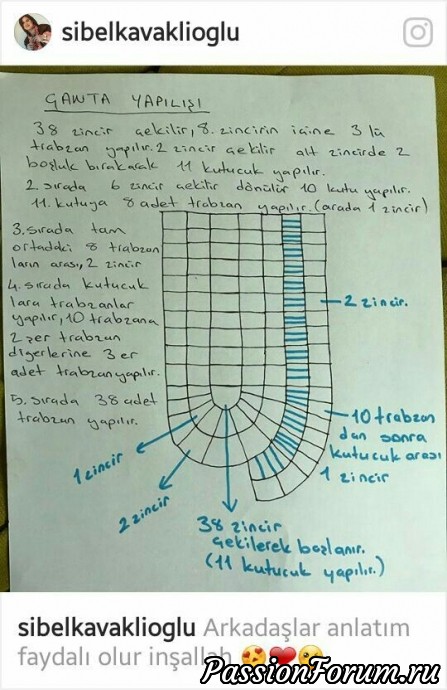 sibelkavaklioglu
ÇANTA YAPILIŞI
38 zincir çekilir, 8. zincirin içine 3 lü
trabzan yapılır. 2 zincir çekilir alt zincirde 2
boşluk bırakarak 11 kutucuk yapılır.
2. sırada 6 zincir çekilir dönülür 10 kutu yapılır.
11. kutuya 8 adet trabzan yapılır. (arada 1 zincir)
3. sırada tam
ortadaki 8 trabzan
ların arası, 2 zincir
4. sırada kutucuk
lara trabzanlar
yapılır, 10 trabzana
2 şer trabzan
diğerlerine 3 er
adet trabzan yapılır.
5. sırada 38 adet
trabzan yapılır.
2 zincir.
10 trabzan
dan sonra
kutucuk arası
1 zincir
1 zincir
2 zincir
38 zincir
çekilerek başlanır.
(11 kutucuk yapılır.)
sibelkavaklioglu Arkadaşlar anlatım
faydalı olur inşallah 😍❤️😘
PassionForum.ru